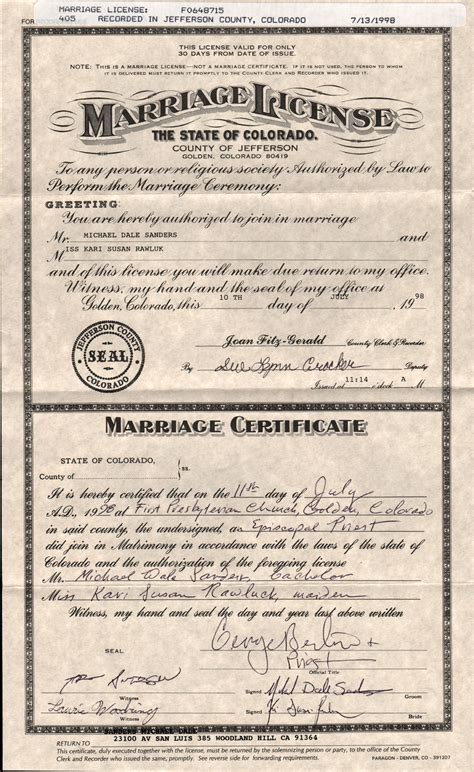 MARRIAGE LICENSE: F0648715
405 RECORDED IN JEFFERSON COUNTY, COLORADO 7/13/1998
THIS LICENSE VALID FOR ONLY
30 DAYS FROM DATE OF ISSUE.
NOTE: THIS IS A MARRIAGE LICENSE—NOT A MARRIAGE CERTIFICATE. IF IT IS NOT USED, THE PERSON TO WHOM
IT IS DELIVERED MUST RETURN IT PROMPTLY TO THE COUNTY CLERK AND RECORDER WHO ISSUED IT.
MARRIAGE LICENSE
THE STATE OF COLORADO.
COUNTY OF JEFFERSON
GOLDEN, COLORADO 80419
To any person or religious society Authorized by Law to
Perform the Marriage Ceremony:
GREETING:
You are hereby authorized to join in marriage
Mr. MICHAEL DALE SANDERS and
MISS KARI SUSAN RAWLUK
and of this license you will make due return to my office.
Witness, my hand and the seal of my office at
Golden, Colorado, this 10 TH day of JULY 1998
JEFFERSON COUNTY
SEAL
COLORADO
Joan Fitz-Gerald County Clerk & Recorder
By Sue Lynn Crocker Deputy
Issued at 11:14 o'clock A M
MARRIAGE CERTIFICATE
STATE OF COLORADO,
County of ss.
It is hereby certified that on the 11th day of July
A.D., 1998 at First Presbyterian Church, Golden, Colorado
in said county, the undersigned, as Episcopal Priest
did join in Matrimony in accordance with the laws of the state of
Colorado and the authorization of the foregoing license
Mr. Michael Dale Sanders, bachelor
Miss Kari Susan Rawluck, maiden
Witness, my hand and seal the day and year last above written
SEAL
Priest
Official Title
Witness
Signed
Laurie
Witness
Signed
SANDERS MICHAEL DALE
23100 AV SAN LUIS 385 WOODLAND HILL CA 91364
RETURN TO
This certificate, duly executed together with the license, must be returned by the solemnizing person or party, to the office of the County
Clerk and Recorder who issued same, promptly. See reverse side for forwarding requirements. PARAGON - DENVER, CO - 391207